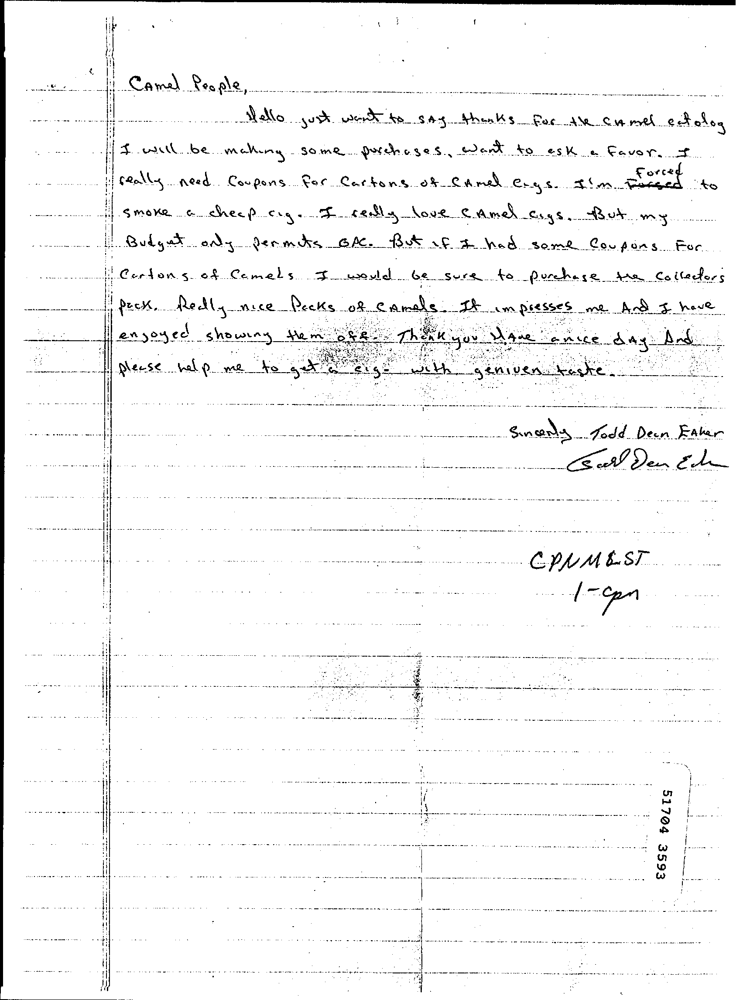 Camel People,
Hello just want to say thanks For the Camel catolog
I will be making some purchoses, want to ask a Favor. I
really need Coupons For Cartons of Camel Cigs. I'm Forced to
smoke a cheep cig. I really love Camel cigs. But my
Budget only permits GPC. But if I had some Coupons For
Cartons of Camels I would be sure to purchase the Collectors
pack. Really nice Packs of Camels. It impresses me And I have
enjoyed showing them off. Thank you Have a nice day And
please help me to get a cig- with geniuen taste.
Sincerly Todd Dean Eaker
CPNMEST
1-cpn
51704 3593